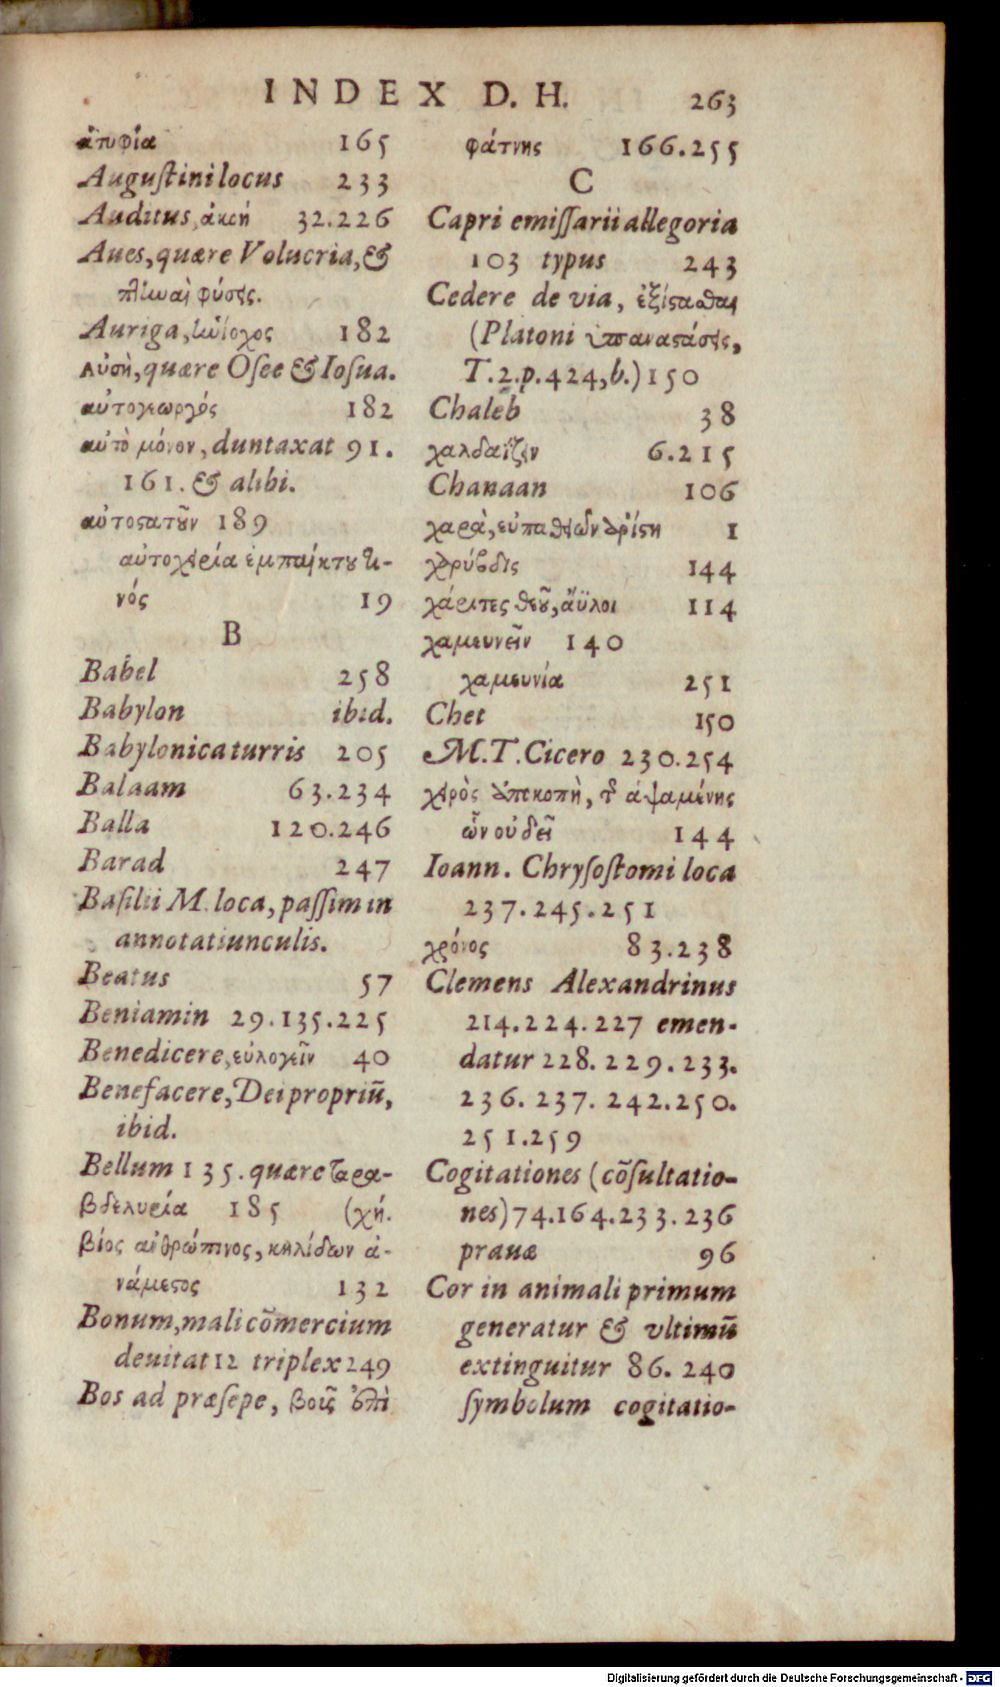 INDEX D. H. 263
ἀτυφία 165
Auguſtini locus 233
Auditus, ἀκοή 32.226
Aues, quære Volucria, &
πτηναὶ φύσεις.
Auriga, ἡνίοχος 182
Αὐσὴ, quære Oſee & Ioſua.
αὐτογεωργός 182
αὐτὸ μόνον, duntaxat 91.
161. & alibi.
αὐτοστατοῦν 189
αὐτοχειρία ἐμπαίκτου τι-
νός 19
B
Babel 258
Babylon ibid.
Babylonica turris 205
Balaam 63.234
Balla 120.246
Barad 247
Baſilii M. loca, paſſim in
annotatiunculis.
Beatus 57
Beniamin 29.135.225
Benedicere, εὐλογεῖν 40
Benefacere, Dei propriũ,
ibid.
Bellum 135. quære ταρα-
βδελυρία 185 (χή.
βίος ἀνθρώπινος, κηλίδων ἀ-
νάμεστος 132
Bonum, mali cõmercium
deuitat 12 triplex 249
Bos ad præſepe, βοῦς ἐπὶ
φάτνης 166.255
C
Capri emiſſarii allegoria
103 typus 243
Cedere de via, ἐξίστασθαι
(Platoni ὑπαναστάσεις,
T.2.p.424,b.) 150
Chaleb 38
χαλδαΐζειν 6.215
Chanaan 106
χαρὰ, εὐπαθειῶν ἀρίστη 1
χάρυβδις 144
χάριτες θεοῦ, ἄϋλοι 114
χαμευνεῖν 140
χαμευνία 251
Chet 150
M. T. Cicero 230.254
χειρὸς ἀποκοπὴ, τῆς ἁψαμένης
ὧν οὐ δεῖ 144
Ioann. Chryſoſtomi loca
237.245.251
χρόνος 83.238
Clemens Alexandrinus
214.224.227 emen-
datur 228.229.233.
236.237.242.250.
251.259
Cogitationes (cõſultatio-
nes) 74.164.233.236
prauæ 96
Cor in animali primum
generatur & vltimũ
extinguitur 86.240
ſymbolum cogitatio-
Digitalisierung gefördert durch die Deutsche Forschungsgemeinschaft - DFG